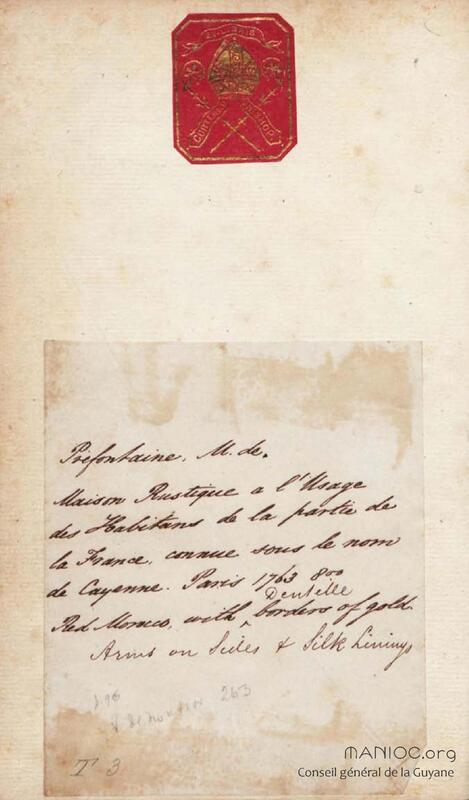 EX LIBRIS
CORTLANDT BISHOP
Préfontaine. M. de.
Maison Rustique a l'Usage
des Habitans de la partie de
la France. connue sous le nom
de Cayenne. Paris 1763 8vo
Dentelle
Red Moroco, with borders of gold.
Arms on Sides & Silk Linings
263
T 3
MANIOC.org
Conseil général de la Guyane